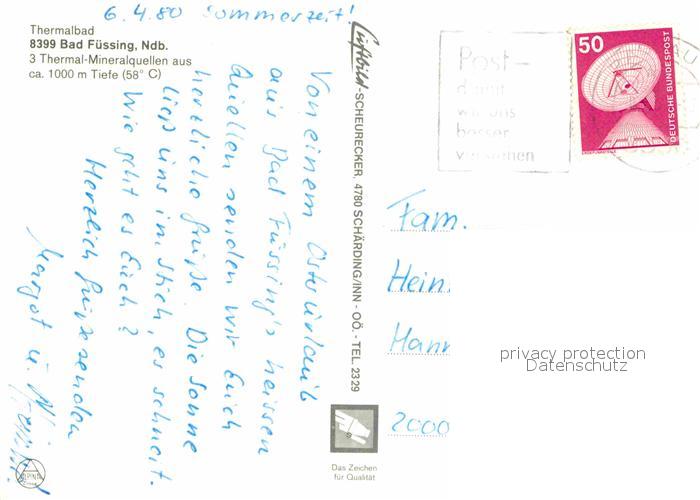 6.4.80 Sommerzeit!
Thermalbad
8399 Bad Füssing, Ndb.
3 Thermal-Mineralquellen aus
ca. 1000 m Tiefe (58° C)
Von einem Osterurlaub
aus Bad Füssing's heissen
Quellen senden wir Euch
herzliche Grüße. Die Sonne
ließ uns im Stich, es schneit.
Wie geht es Euch?
Herzlich grüße senden
Margot u.
ALPINA
Luftbild-SCHEURECKER, 4780 SCHÄRDING/INN - OÖ. - TEL. 2329
Das Zeichen
für Qualität
Post-
damit
wir uns
besser
verstehen
50
DEUTSCHE BUNDESPOST
ERDEFUNKSTELLE
Fam.
Hein
Hann
2000
privacy protection
Datenschutz